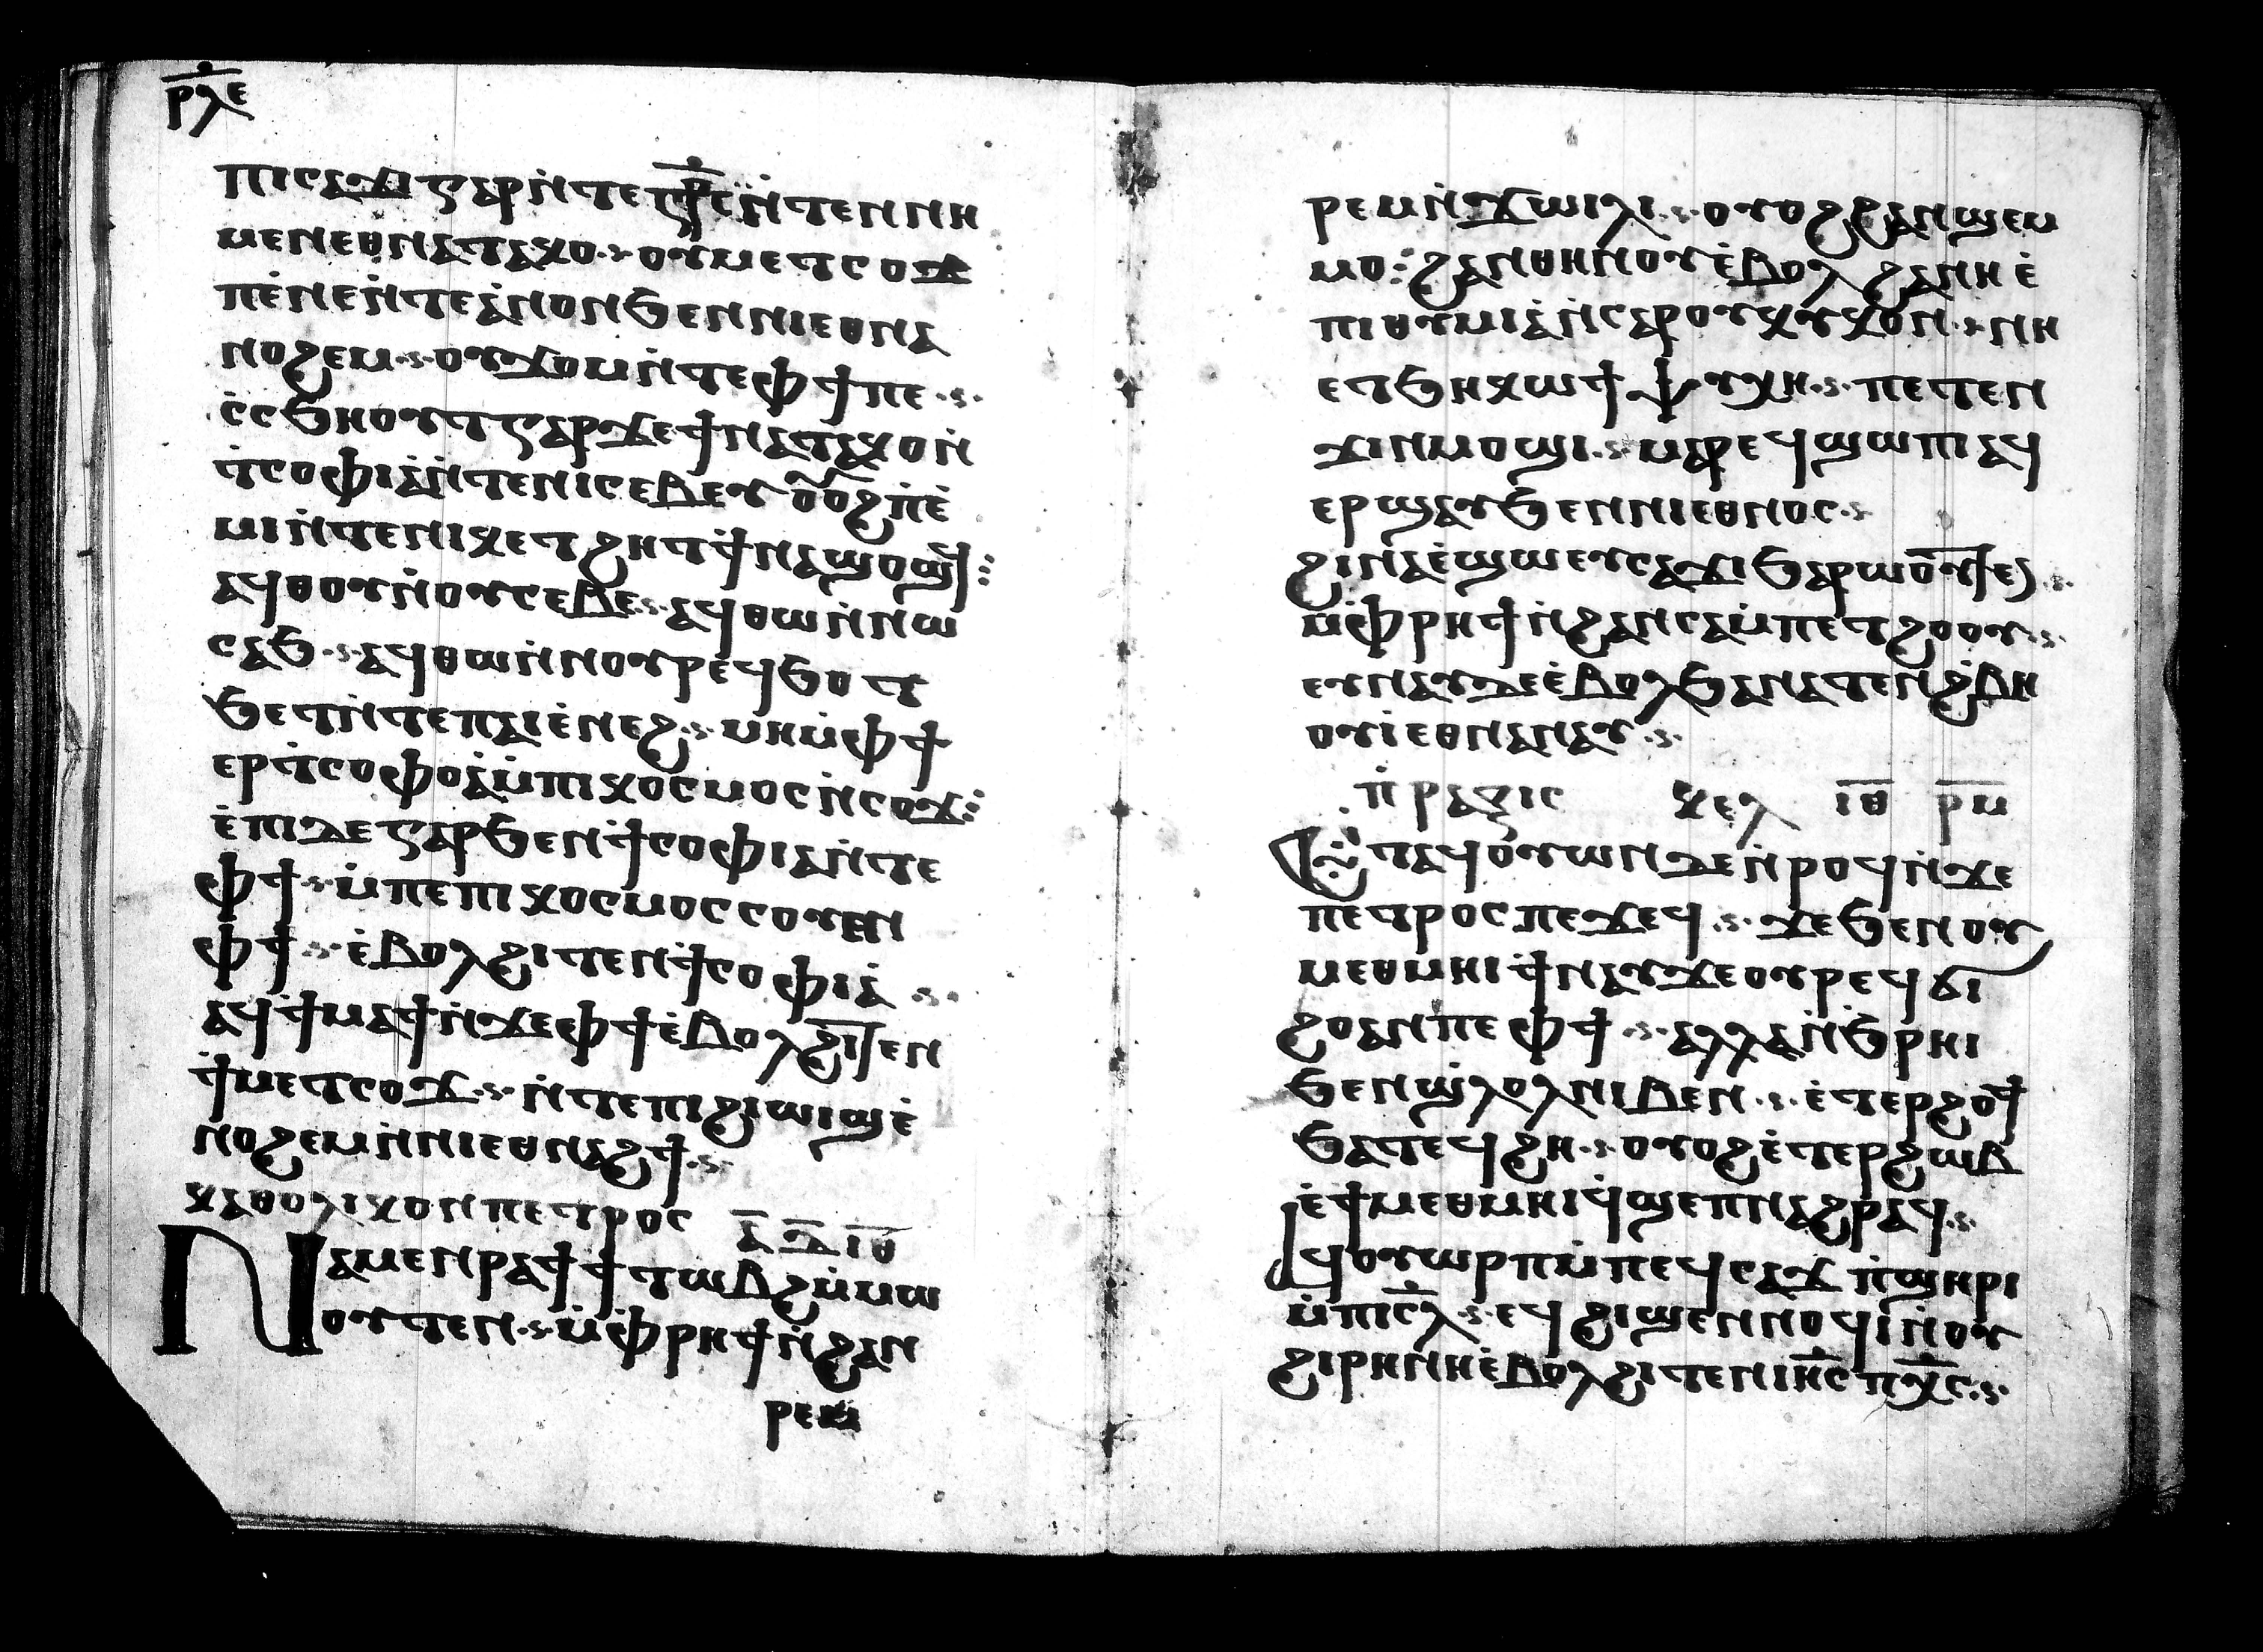 ⲣⲗⲉ
ⲡⲓⲥⲁϫⲓ ⲅⲁⲣ ⲛ̇ⲧⲉ ⲡ̇ⲥ̇ⲧⲣⲥ ⲛ̇ⲧⲉⲛ ⲛⲏ
ⲙⲉⲛ ⲉⲑⲛⲁⲧⲁⲕⲟ · ⲟⲩⲙⲉⲧⲥⲟϫ
ⲡⲉ̇ ⲛⲉⲛ̇ⲧⲉ ⲁ̇ⲛⲟⲛ ϧⲉⲛ ⲛⲓⲉⲑⲛⲁ
ⲛⲟϩⲉⲙ · ⲟⲩϫⲟⲙ ⲛ̇ⲧⲉ ⲫϯ ⲡⲉ ·
ⲥ̇ⲥϧⲏⲟⲩⲧ ⲅⲁⲣ ϫⲉ ϯⲛⲁⲧⲁⲕⲟ ⲛ̇
ⲧ̇ⲥⲟⲫⲓⲁ ⲛ̇ⲧⲉ ⲛⲓⲥⲉⲃⲉⲩ ⲟⲩⲟϩ ⲡ̇ⲉ̇
ⲙⲓ ⲛ̇ⲧⲉ ⲛⲓⲕⲉⲧϩⲏⲧ ϯ̇ⲛⲁϣⲟϣϥ :
ⲁϥⲑⲟⲩⲛ̇ ⲟⲩⲥⲉⲃⲉ · ⲁϥⲑⲱⲛ̇ ⲛⲱ
ⲥⲁϧ · ⲁϥⲑⲱⲛ̇ ⲛⲟⲩⲣⲉϥϧⲟⲧ
ϧⲉⲧ ⲛ̇ⲧⲉ ⲡⲁⲓⲉ̇ⲛⲉϩ · ⲙⲏ ⲙ̇ⲫϯ
ⲉⲣ ⲧ̇ⲥⲟⲫⲟⲁ̇ ⲙ̇ⲡⲓⲕⲟⲥⲙⲟⲥ ⲛ̇ⲥⲟϫ :
ⲉ̇ⲡⲓⲇⲉ ⲅⲁⲣ ϧⲉⲛ ϯ̇ⲥⲟⲫⲓⲁ ⲛ̇ⲧⲉ
ⲫϯ · ⲙ̇ⲡⲉ ⲡⲓⲕⲟⲥⲙⲟⲥ ⲥⲟⲩⲉⲛ
ⲫϯ · ⲉ̇ⲃⲟⲗ ϩⲓⲧⲉⲛ ϯ̇ⲥⲟⲫⲓⲁ̇ ·
ⲁϥϯⲙⲁϯ ⲛ̇ϫⲉ ⲫϯ ⲉ̇ⲃⲟⲗ ϩⲓⲧⲉⲛ
ϯ̇ⲙⲉⲧⲥⲟϫ · ⲛ̇ⲧⲉ ⲡⲓϩⲓⲱⲓϣ ⲉ̇
ⲛⲟϩⲉⲙ ⲛ̇ⲛⲓⲉⲑⲛⲁϩϯ ·
ⲕⲁⲑⲟⲗⲓⲕⲟⲛ ⲡⲉⲧⲣⲟⲥ ⲁ̅ ⲇ̅ ⲓ̅ⲑ̅
Ⲛⲁⲙⲉⲛⲣⲁϯ ϯⲧⲱⲃϩ ⲙ̇ⲙⲱ
ⲟⲩⲧⲉⲛ · ⲙ̇ⲫⲣⲏϯ ⲛ̇ϩⲁⲛ
ⲣⲉⲙ
ⲣⲉⲙⲛ̇ϫⲱⲓⲗⲓ · ⲟⲩⲟϩ ϩⲁⲛϣⲉⲙ
ⲙⲟ : ϩⲁⲛⲑⲏⲛⲟⲩ ⲉ̇ⲃⲟⲗ ϩⲁⲛⲏ ⲉ̇
ⲡⲓⲑⲩⲙⲓⲁ̇ ⲛ̇ⲥⲁⲣⲟⲩⲕⲩⲕⲟⲛ · ⲛⲏ
ⲉⲧϧⲏⲕ ⲱϯ ⲯⲩⲭⲏ · ⲡⲉⲧⲉⲛ
ϫⲓⲛⲙⲟϣⲓ · ⲙⲁⲣⲉϥϣⲱⲡⲓ ⲁϥ
ⲉⲣϣⲁⲩ ϧⲉⲛ ⲛⲓⲉⲑⲛⲟⲥ ·
ϩⲓⲛⲁ ⲉ̇ϣⲱ ⲉⲩⲥⲁϫⲓ ϧⲁⲣⲱⲟⲩⲧⲉⲛ ·
ⲙ̇ⲫⲣⲏϯ ⲛ̇ϩⲁⲛⲥⲁⲙ̇ⲡⲉⲧϩⲟⲟⲩ ·
ⲉⲩⲛⲁⲩ ⲇⲉ ⲉ̇ⲃⲟⲗ ϧⲁⲛⲁⲧⲉⲛ ϩ̇ⲃⲏ
ⲟⲩⲓ̇ ⲉⲑⲛⲁⲛⲁⲩ ·
ⲡ̇ⲣⲁⲝⲓⲥ ⲕⲉⲗ ⲓ̅ⲑ̅ ⲣ̅ⲙ̅
Ⲉⲧⲁϥⲟⲩⲱⲛ ⲇⲉ ⲛ̇ⲣⲟϥ ⲛ̇ϫⲉ
ⲡⲉⲧⲣⲟⲥ ⲡⲉϫⲉϥ · ϫⲉ ϧⲉⲛ ⲟⲩ
ⲙⲉⲑⲙⲏⲓ ϯ̇ⲛⲁⲩ ϫⲉ ⲟⲩⲣⲉϥϭⲓ
ϩⲟ ⲁⲛ ⲡⲉ ⲫϯ · ⲁⲗⲗⲁ ⲛ̇ϧⲣⲏⲓ
ϧⲉⲛ ϣ̇ⲗⲟⲗ ⲛⲓⲃⲉⲛ · ⲉ̇ⲧⲉⲣϩⲟϯ
ϧⲁⲧⲉϥϩⲏ · ⲟⲩⲟϩ ⲉ̇ⲧⲉⲣϩⲱⲃ
ⲉ̇ϯⲙⲉⲑⲙⲏⲓ ϥ̇ϣⲉⲡ ⲛⲁϩⲣⲁϥ ·
ⲁϥⲟⲩⲱⲣⲡ ⲙ̇ⲡⲉϥⲥⲁϫ ⲛ̇ϣⲏⲣⲓ
ⲙ̇ⲡⲓⲥ̅ⲗ̅ · ⲉϥϩⲓϣⲉⲛⲛⲟϥⲓ ⲛ̇ⲟⲩ
ϩⲓⲣⲏⲛⲏ ⲉ̇ⲃⲟⲗ ϩⲓⲧⲉⲛ ⲓⲏ̅ⲥ ⲡⲭ̅ⲥ ·